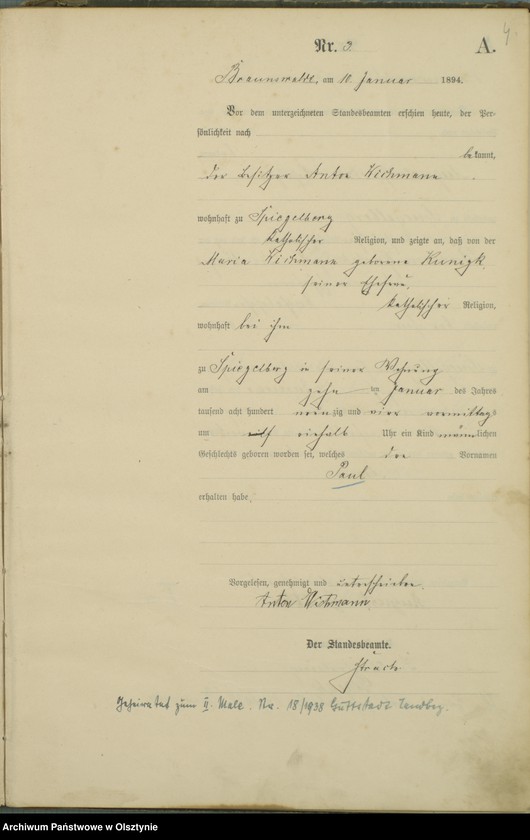 4.
Nr. 3. A.
Braunswalde, am 10. Januar 1894.
Vor dem unterzeichneten Standesbeamten erschien heute, der Per-
sönlichkeit nach
bekannt,
der Besitzer Anton Wichmann
wohnhaft zu Spiegelberg
katholischer Religion, und zeigte an, daß von der
Maria Wichmann geborene Kunigk,
seiner Ehefrau,
katholischer Religion,
wohnhaft bei ihm
zu Spiegelberg in seiner Wohnung
am zehn ten Januar des Jahres
tausend acht hundert neunzig und vier vormittags
um Uhr ein Kind männlichen
Geschlechts geboren worden sei, welches den Vornamen
Paul
erhalten habe.
Vorgelesen, genehmigt und unterschrieben.
Anton Wichmann
Der Standesbeamte.
Geheiratet zum II. Male. Nr. 18/1938 Guttstadt Landbez.
Archiwum Państwowe w Olsztynie